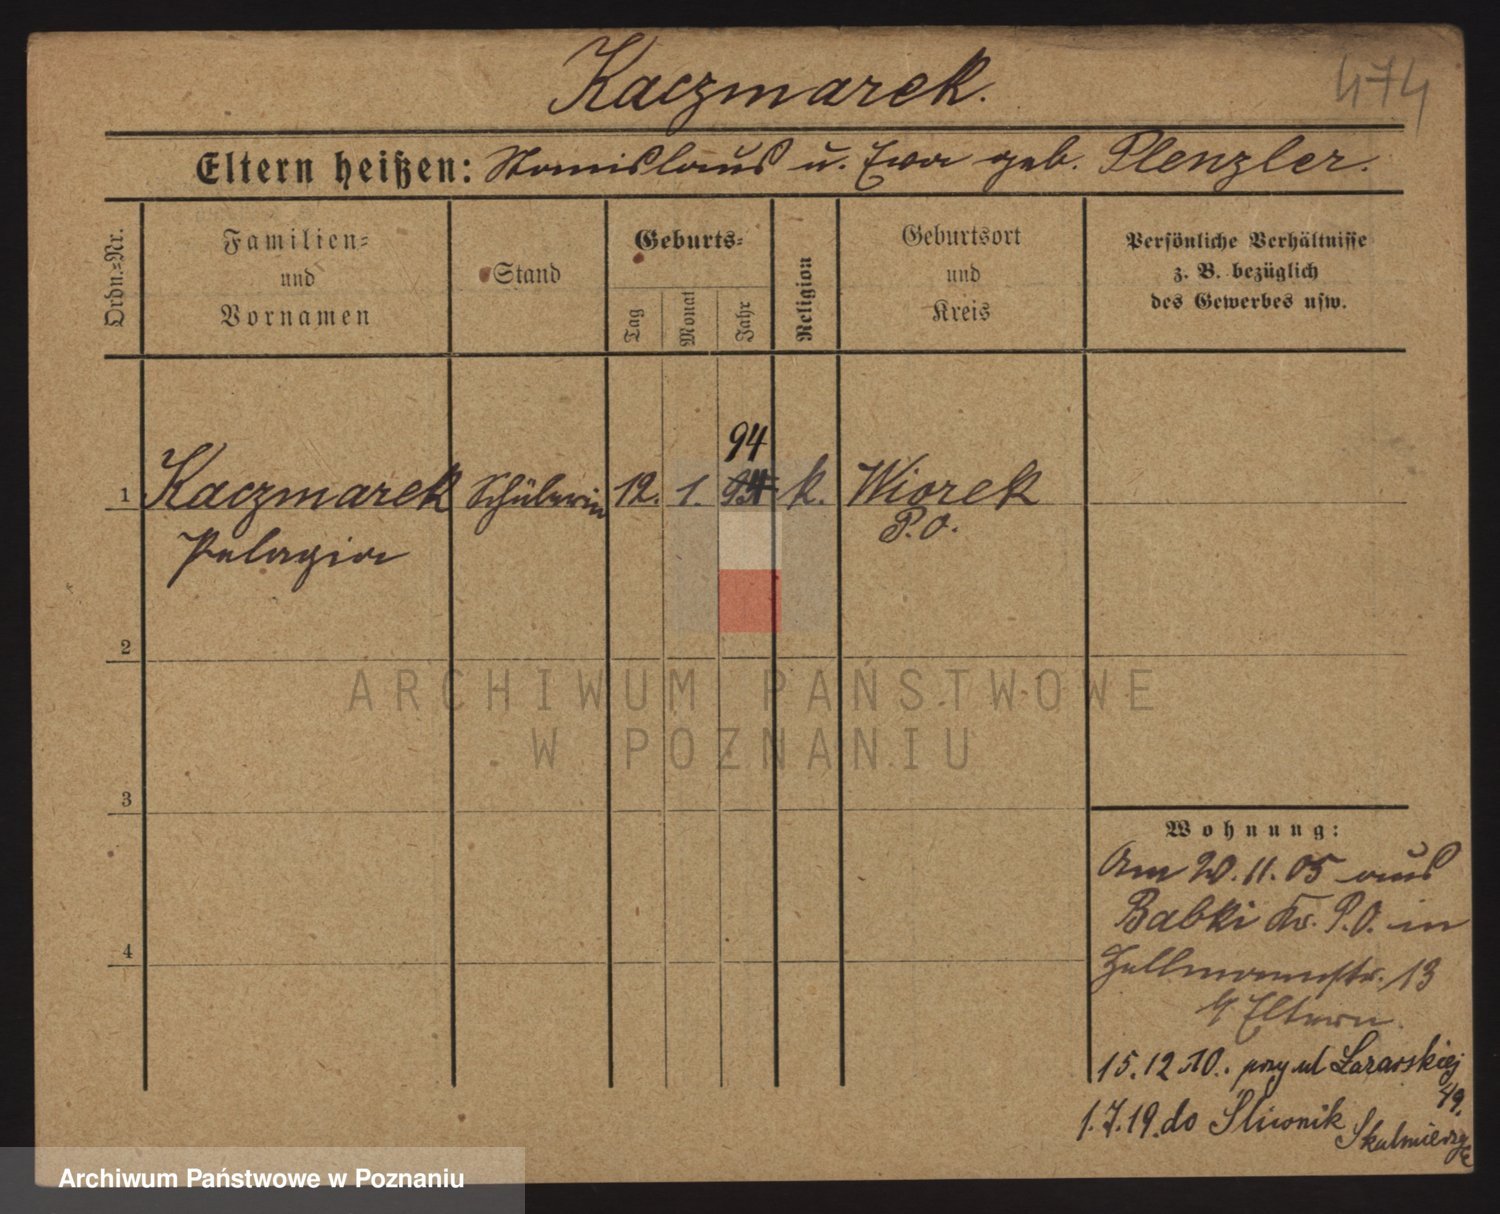 Kaczmarek.
474
Eltern heißen: Stanislaus u. Ewa geb. Plenzler.
Ordn.=Nr.
Familien=
und
Vornamen
Stand
Geburts=
Tag
Monat
Jahr
Religion
Geburtsort
und
Kreis
Persönliche Verhältnisse
z. B. bezüglich
des Gewerbes usw.
94
1 Kaczmarek Schülerin 12. 1. k. Wiorek
Pelagia P.O.
2
ARCHIWUM PAŃSTWOWE
W POZNANIU
3
Wohnung:
Am 20.11.05 aus
Babki Kr. P.O. in
4
Hellmannstr. 13
b/ Eltern.
15.12.10. przy ul Łazarskiej
49.
1.7.19. do Śliwnik
Skalmierzyce
Archiwum Państwowe w Poznaniu